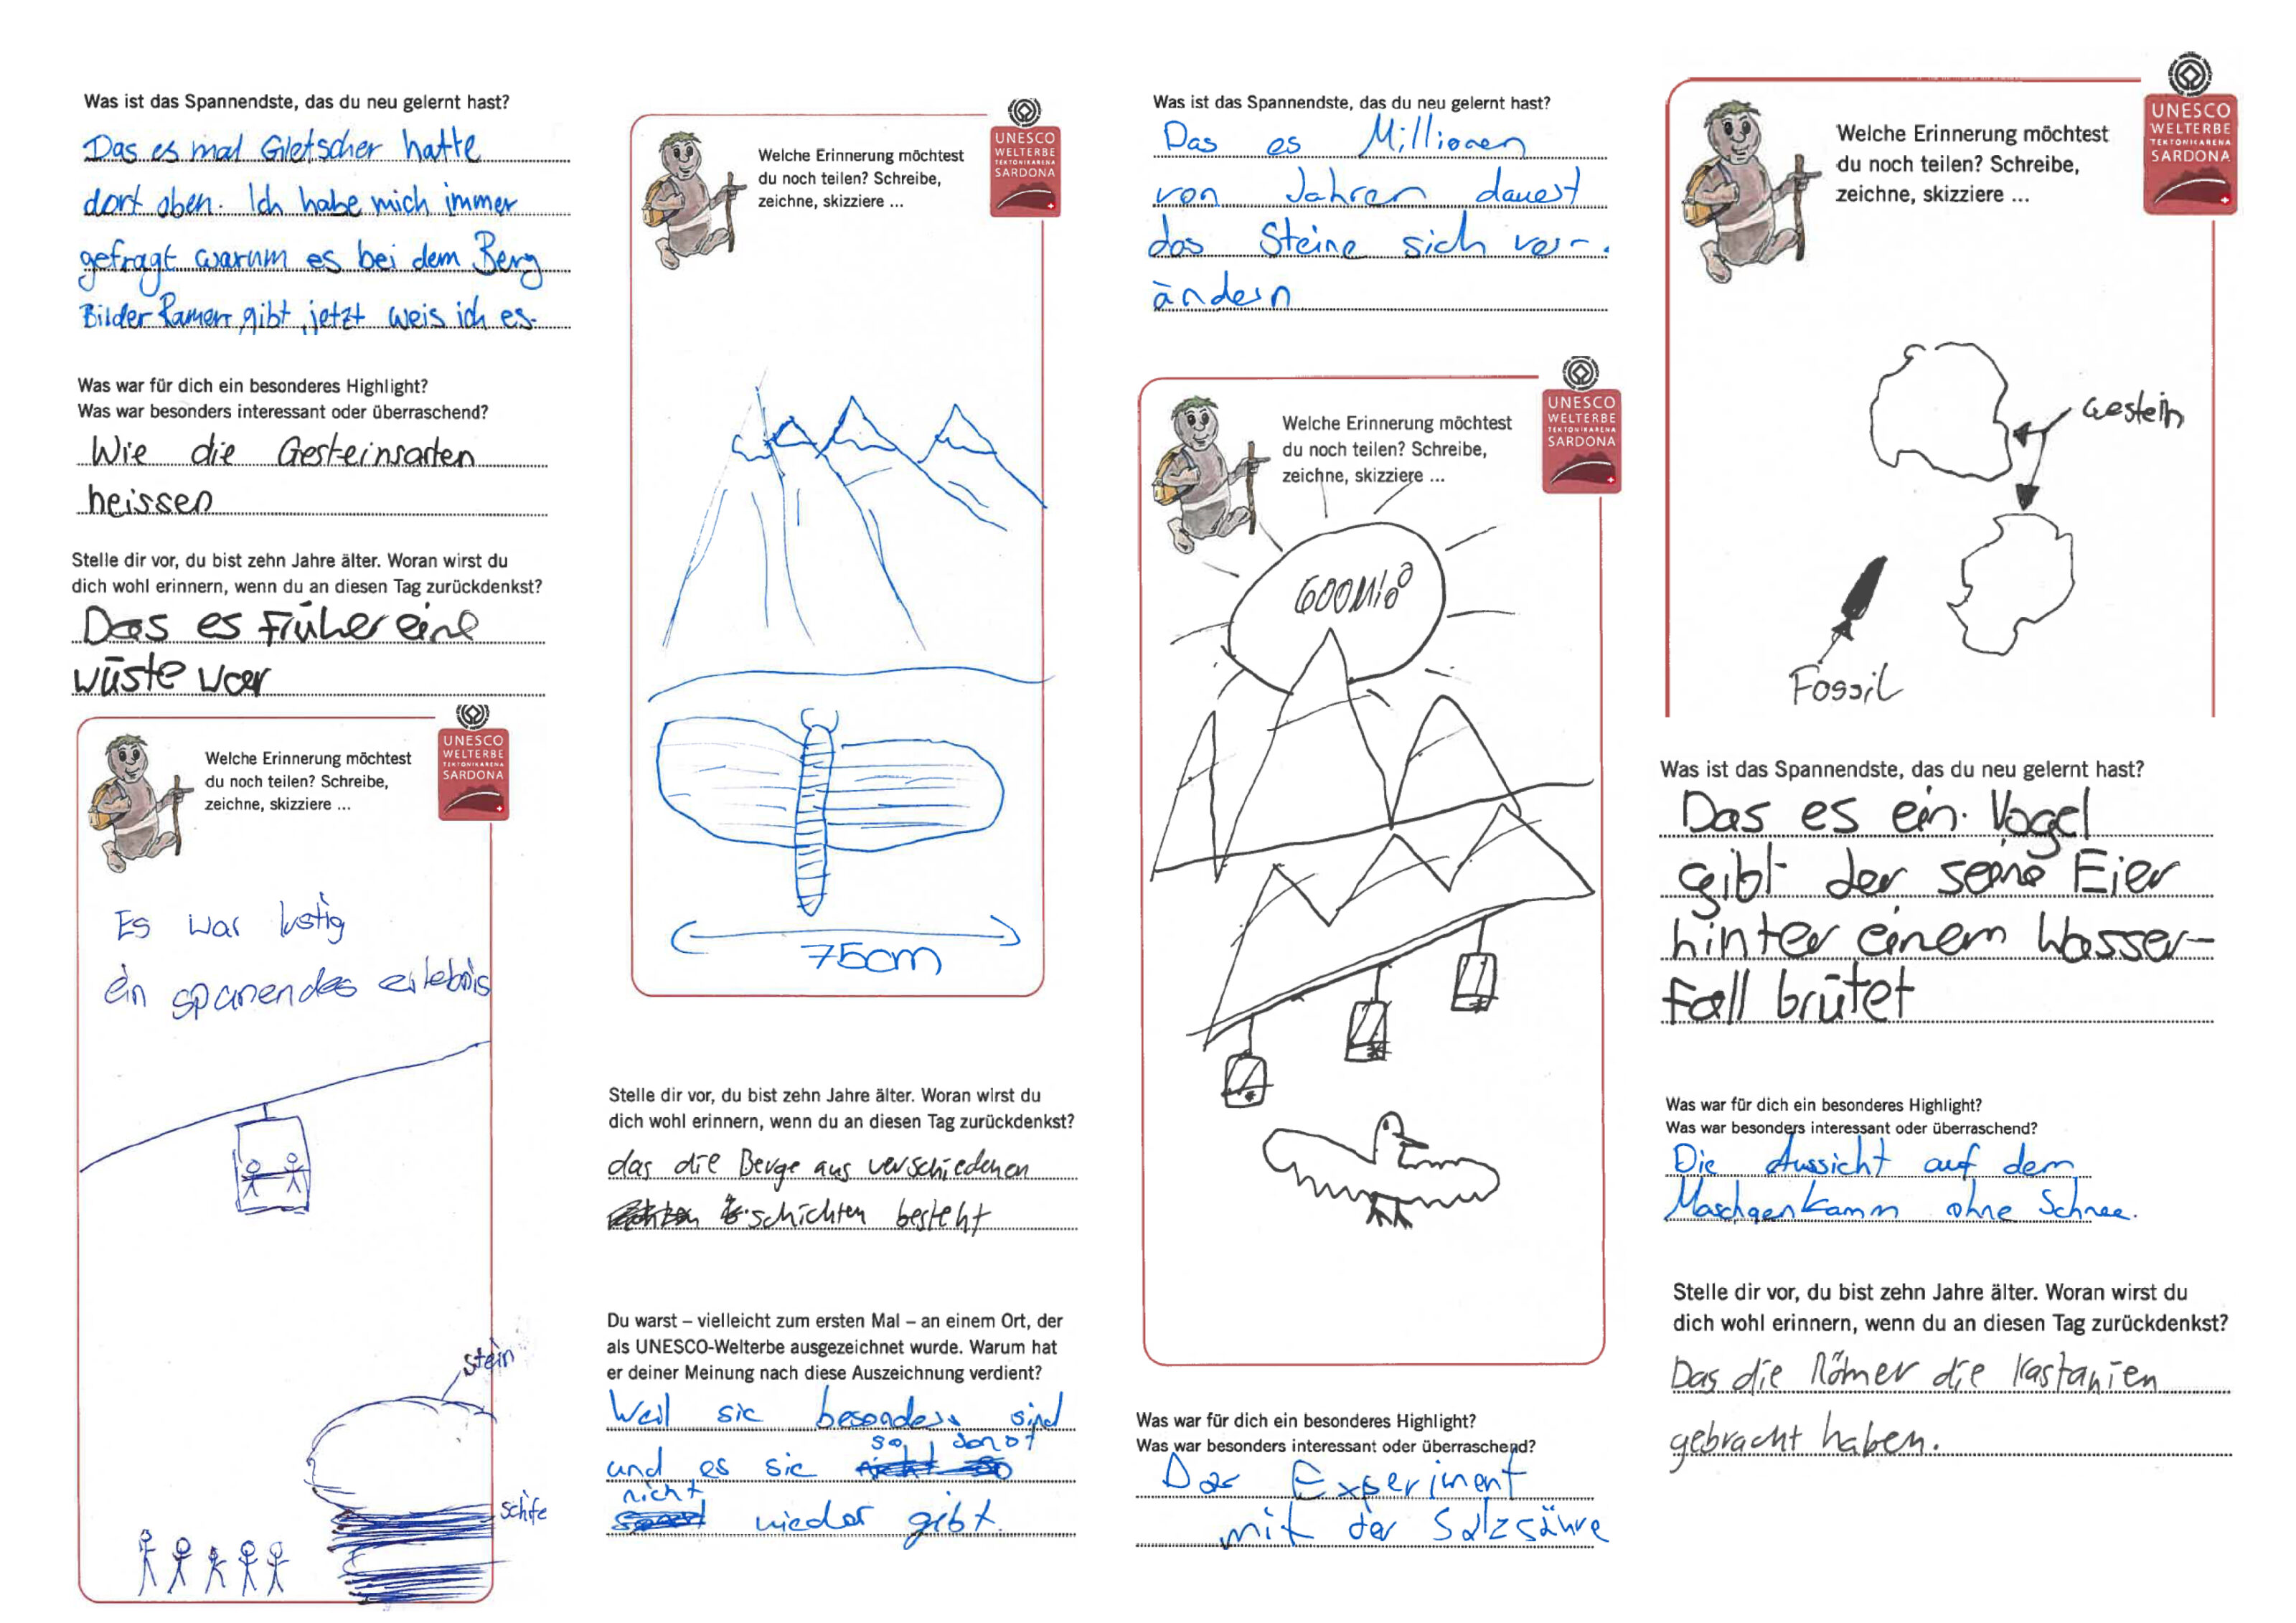 Was ist das Spannendste, das du neu gelernt hast?
Das es mal Gletscher hatte
dort oben. Ich habe mich immer
gefragt warum es bei dem Berg
Bilder Ramen gibt jetzt weis ich es.
Was war für dich ein besonderes Highlight?
Was war besonders interessant oder überraschend?
Wie die Gesteinsarten
heissen
Stelle dir vor, du bist zehn Jahre älter. Woran wirst du
dich wohl erinnern, wenn du an diesen Tag zurückdenkst?
Das es früher eine
wüste war
UNESCO
WELTERBE
TEKTONIKARENA
SARDONA
Welche Erinnerung möchtest
du noch teilen? Schreibe,
zeichne, skizziere ...
Es war lustig
ein spanendes erlebnis
stein
schife
UNESCO
WELTERBE
TEKTONIKARENA
SARDONA
Welche Erinnerung möchtest
du noch teilen? Schreibe,
zeichne, skizziere ...
75cm
Stelle dir vor, du bist zehn Jahre älter. Woran wirst du
dich wohl erinnern, wenn du an diesen Tag zurückdenkst?
das die Berge aus verschiedenen
schichten besteht
Du warst – vielleicht zum ersten Mal – an einem Ort, der
als UNESCO-Welterbe ausgezeichnet wurde. Warum hat
er deiner Meinung nach diese Auszeichnung verdient?
Weil sie besonders sind
und es sie so
nicht wieder gibt.
Was ist das Spannendste, das du neu gelernt hast?
Das es Millionen
von Jahren dauert
das Steine sich ver-
ändern
UNESCO
WELTERBE
TEKTONIKARENA
SARDONA
Welche Erinnerung möchtest
du noch teilen? Schreibe,
zeichne, skizziere ...
600 Mio
Was war für dich ein besonderes Highlight?
Was war besonders interessant oder überraschend?
Das Experiment
mit der Salzsäure
UNESCO
WELTERBE
TEKTONIKARENA
SARDONA
Welche Erinnerung möchtest
du noch teilen? Schreibe,
zeichne, skizziere ...
Gestein
Fossil
Was ist das Spannendste, das du neu gelernt hast?
Das es ein Vogel
gibt der seine Eier
hinter einem Wasser-
fall brütet
Was war für dich ein besonderes Highlight?
Was war besonders interessant oder überraschend?
Die Aussicht auf dem
Maschgenkamm ohne Schnee.
Stelle dir vor, du bist zehn Jahre älter. Woran wirst du
dich wohl erinnern, wenn du an diesen Tag zurückdenkst?
Das die Römer die Kastanien
gebracht haben.